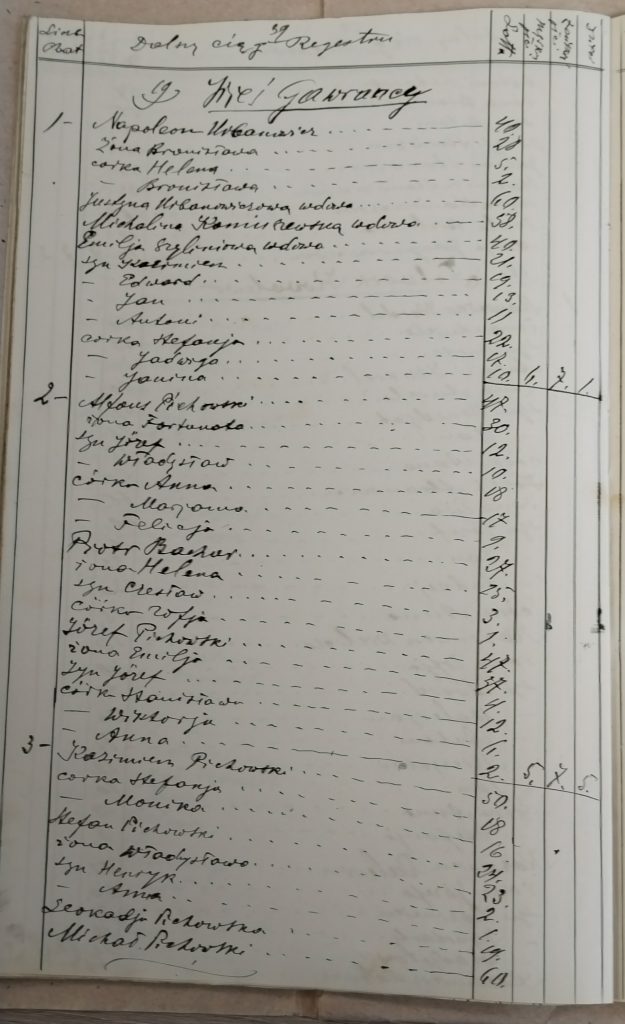 39
Dalszy ciąg Regestru
Lata
19) Wieś Gawrancy
1 - Napoleon Urbanowicz 40.
Żona Bronisława 28
córka Helena 5.
— Bronisława 2.
Justyna Urbanowiczowa wdowa 60.
Michalina Komiszewska wdowa 58.
Emilja Szyliniowa wdowa 40.
syn Kazimierz 21.
- Edward 19.
- Jan 13.
- Antoni 11
córka Stefanja 22.
— Jadwiga 17.
— Janina 10. 7. 1.
2 - Alfons Pichowski 47.
żona Fortunata 30.
syn Józef 12.
— Władysław 10.
córka Anna 18
— Marjanna 17
— Felicja 9.
Piotr Bachar 27.
żona Helena 25.
syn Czesław 3.
córka Zofja 1.
Józef Pichowski 47.
żona Emilja 37.
syn Józef 4.
córk Stanisława 12.
— Wiktorja 11.
— Anna 2. 5. 7. 5.
3 - Kazimierz Pichowski 50.
córka Stefanja 18
— Monika 16.
Stefan Pichowski 24.
żona Władysława 23.
syn Henryk 2.
— Anna 1.
Leokadja Pichowska 19.
Michał Pichowski 60.